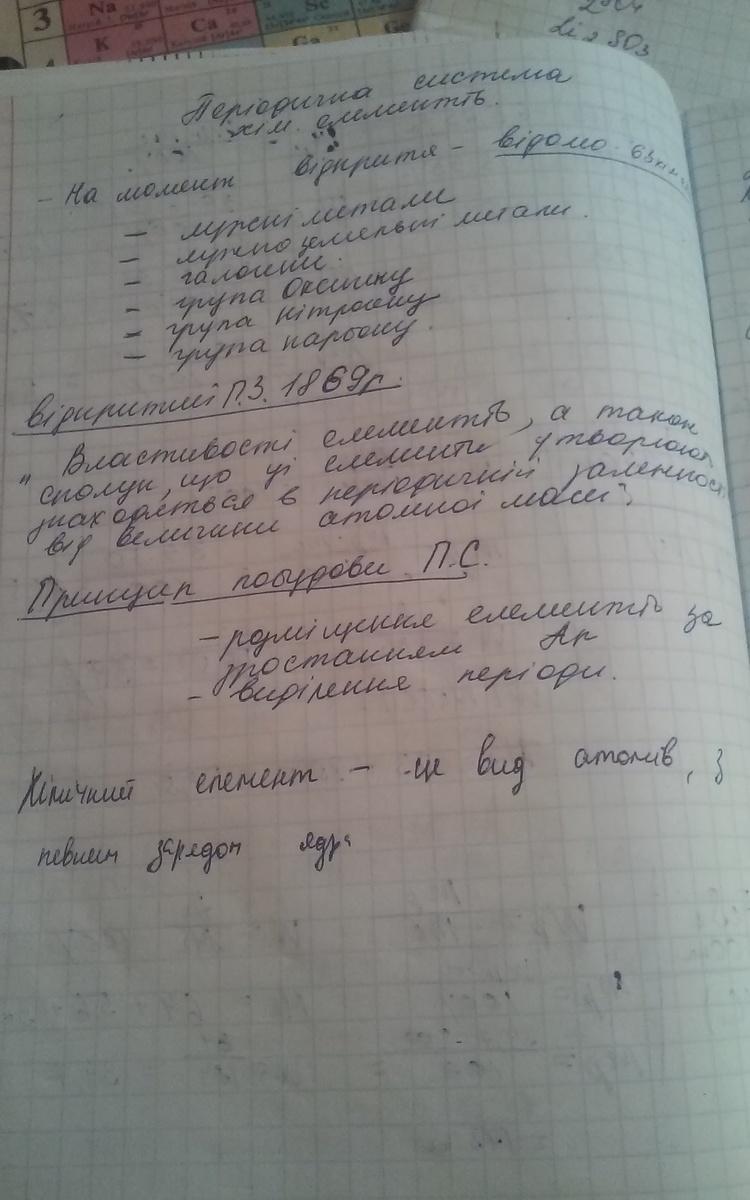 3 Na Sc
4 K Ca Ga Ge
2SO4
Li2SO3
Періодична система
хім. елементів.
- На момент відкриття - відомо 63
- лужні метали
- лужно земельні метали.
- галогени.
- група Оксигену
- група Нітрогену
- група карбону.
Відкритий П.З. 1869р.
" Властивості елементів, а також
сполук, що ці елементи утворюють
знаходяться в періодичній залежності
від величини атомної маси"
Принцип побудови П.С.
- розміщення елементів за
зростанням Ar
- виділення періоди.
Хімічний елемент - це вид атомів, з
певним зарядом ядра